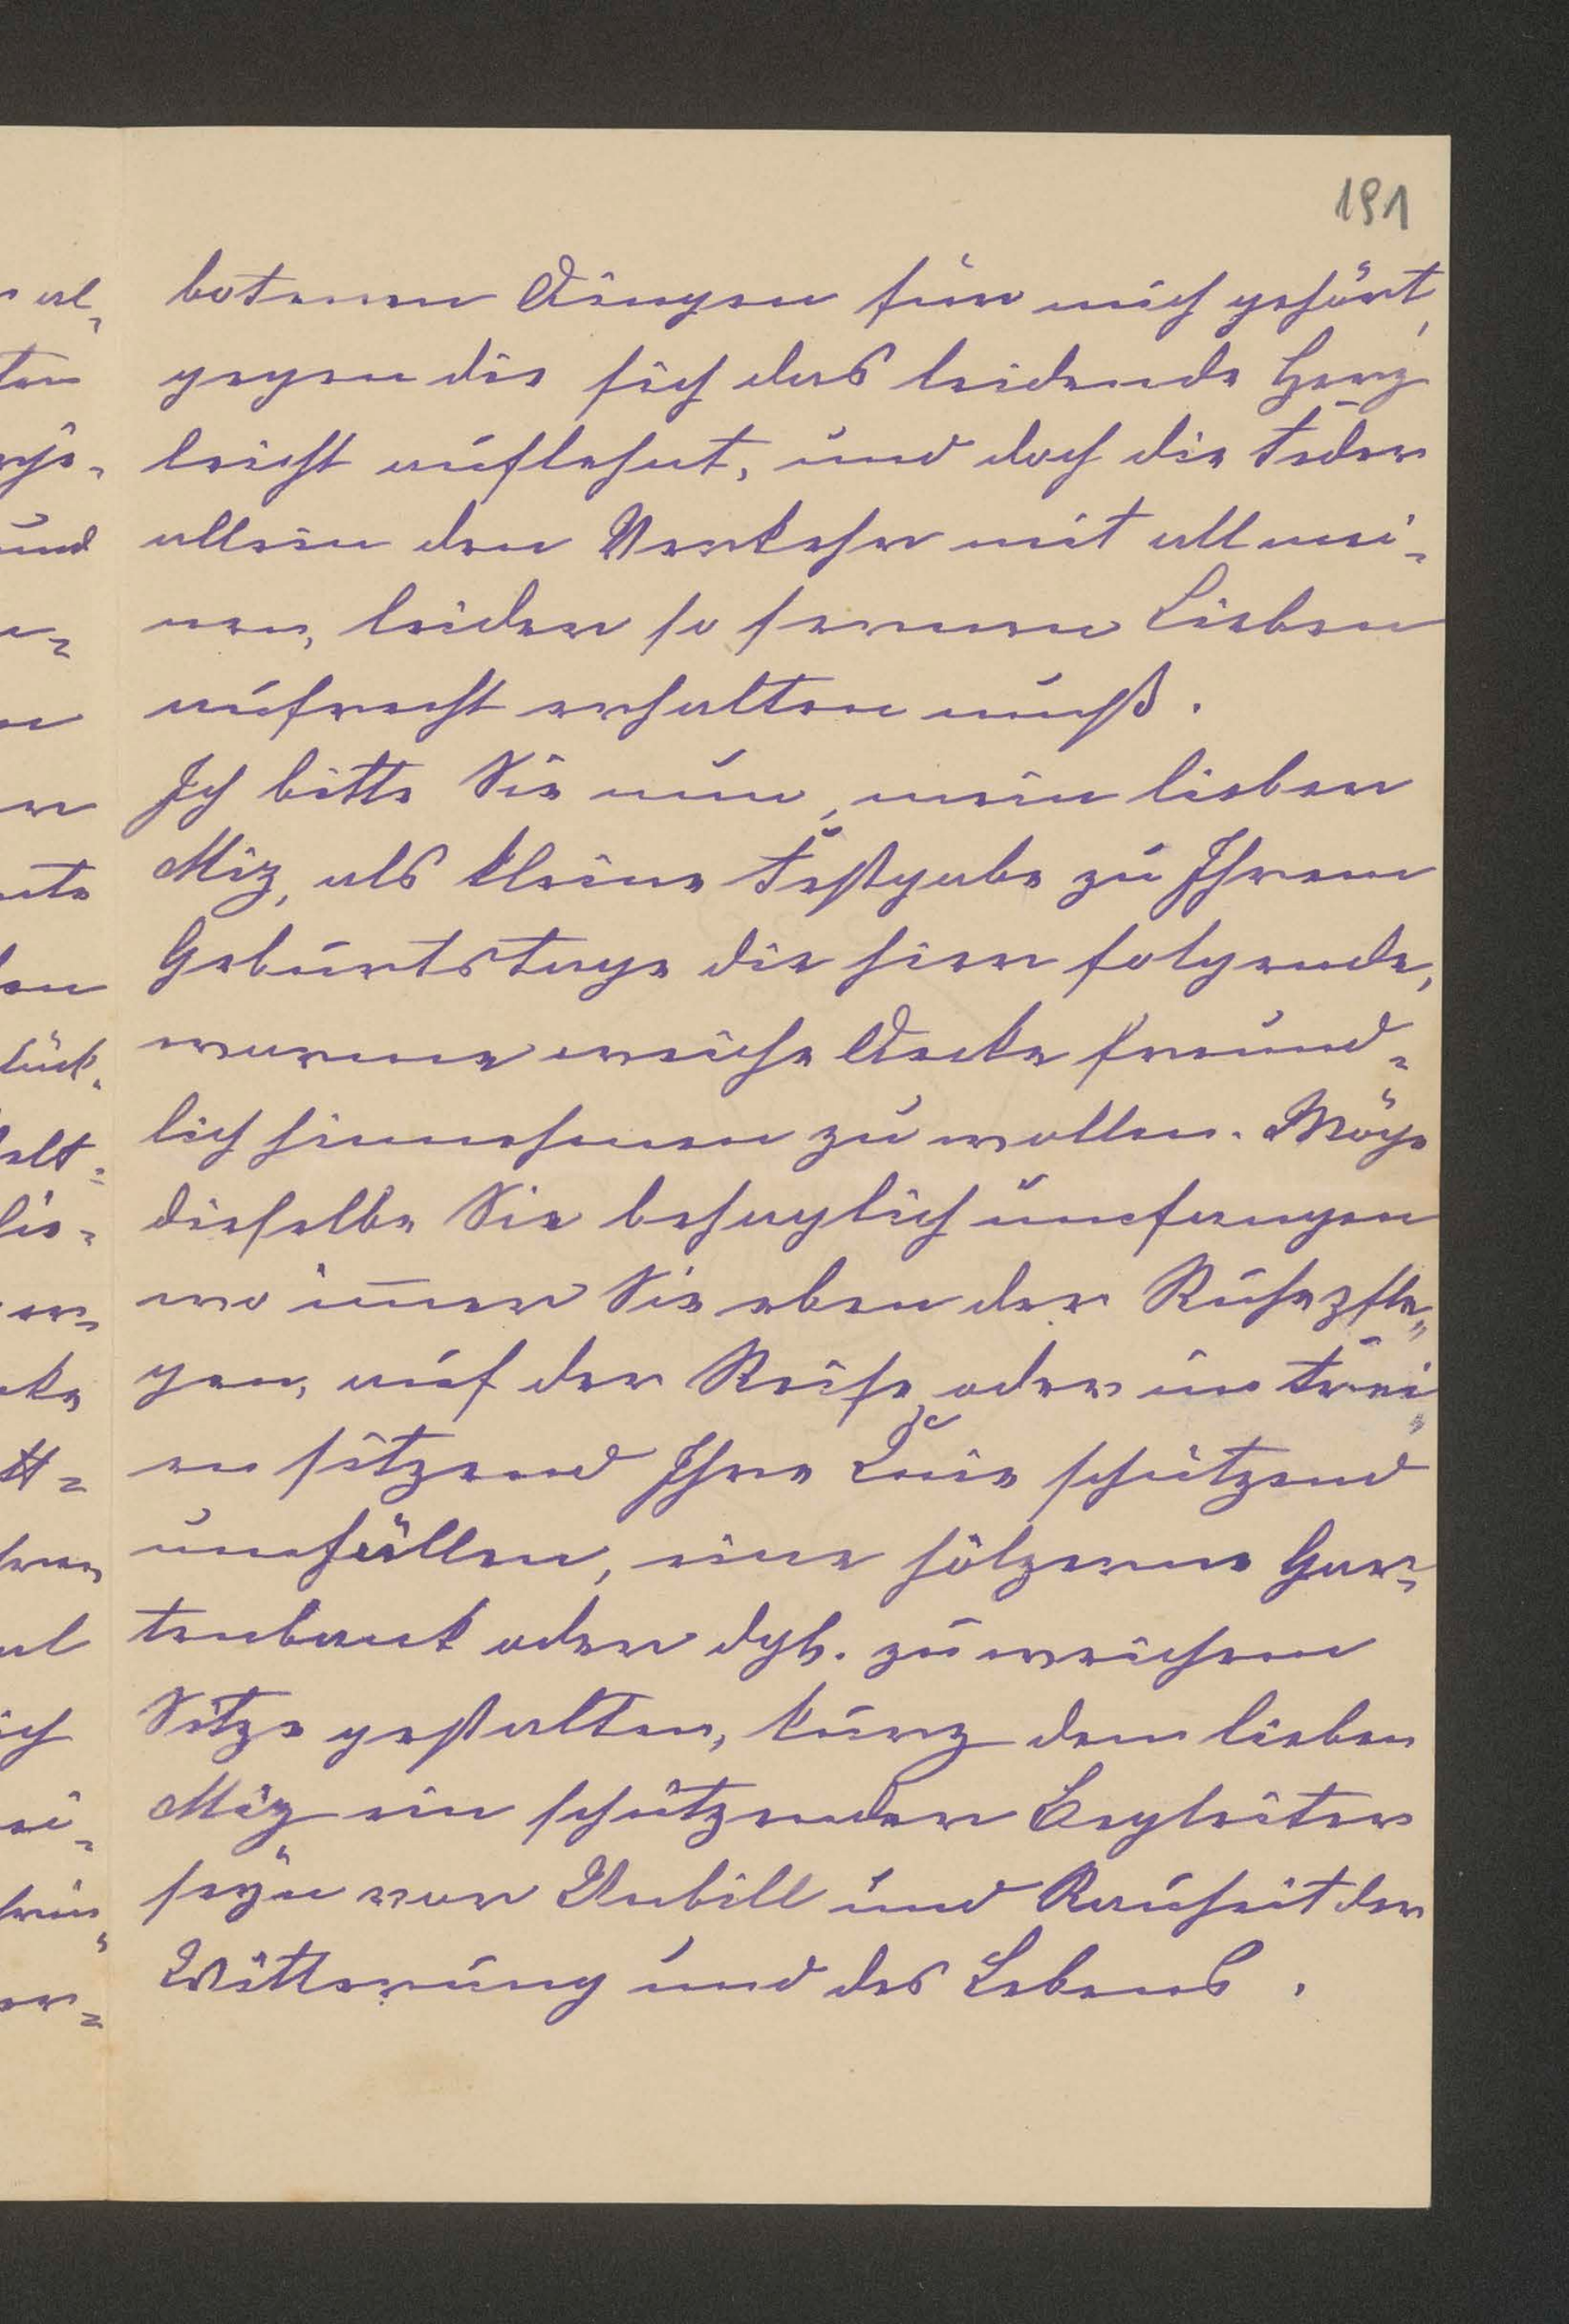 191
botenen Dingen für mich gehört,
gegen die sich das leidende Herz
leicht auflehnt, und doch die Feder
allein den Verkehr mit all mei-
nen, leider so fernen Lieben
aufrecht erhalten muß.
Ich bitte Sie nun, mein lieber
Miz, als kleine Festgabe zu Ihrem
Geburtstage die hier folgende,
warme weiche Decke freund-
lich hinnehmen zu wollen. Möge
dieselbe Sie behaglich umfangen
wo im̅er Sie eben der Ruhe pfle-
gen, auf der Reise, oder im Frei-
en sitzend Ihre Knie schützend
umhüllen, eine hölzerne Gar-
tenbank oder dgl. zu weichem
Sitze gestalten, kurz dem lieben
Miz ein schützender Begleiter
seÿn vor Unbill und Rauheit der
Witterung und des Lebens.